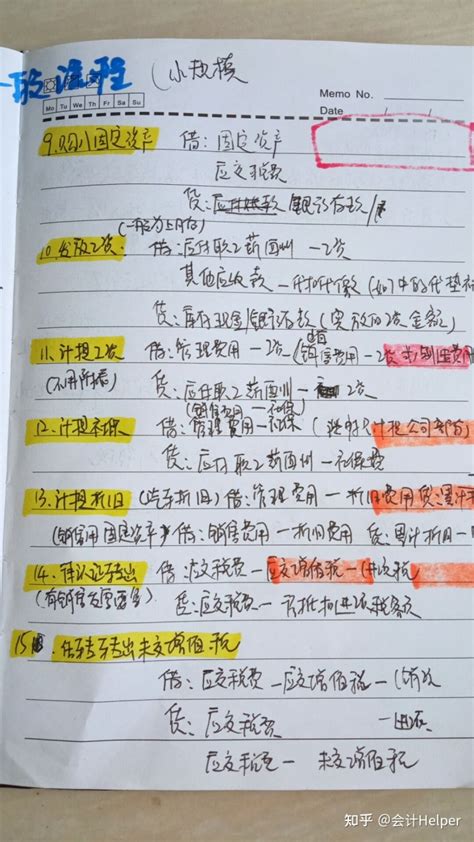 一般流程 (小规模
Mo Tu We Th Fr Sa Su
Memo No.
Date / /
9.购入固定资产 借:固定资产
应交税费
贷:应付账款 银行存款/
(一般为上月份)
10.发放工资 借:应付职工薪酬 — 工资
其他应收款 — 代扣代缴 (如
贷:库存现金/银行存款 (实发的工资金额)
11.计提工资 借:管理费用 — 工资 (销售费用 — 工资 制造费用
贷:应付职工薪酬 — 工资
(销售费用 — 社保)
12.计提社保 借:管理费用 — 社保 (计提公司部分)
贷:应付职工薪酬 — 社保费
13.计提折旧 借:管理费用 — 折旧费用 贷:累计
(销售用固定资产) 借:销售费用 — 折旧费用 贷:累计折旧 —
14.待认证转出 借:应交税费 — 应交增值税 — 进项税
贷:应交税费 — 待抵扣进项税额
15. 结转转出未交增值税
借:应交税费 — 应交增值税 —
贷:应交税费 —
应交税费 — 未交增值税
知乎 @会计Helper